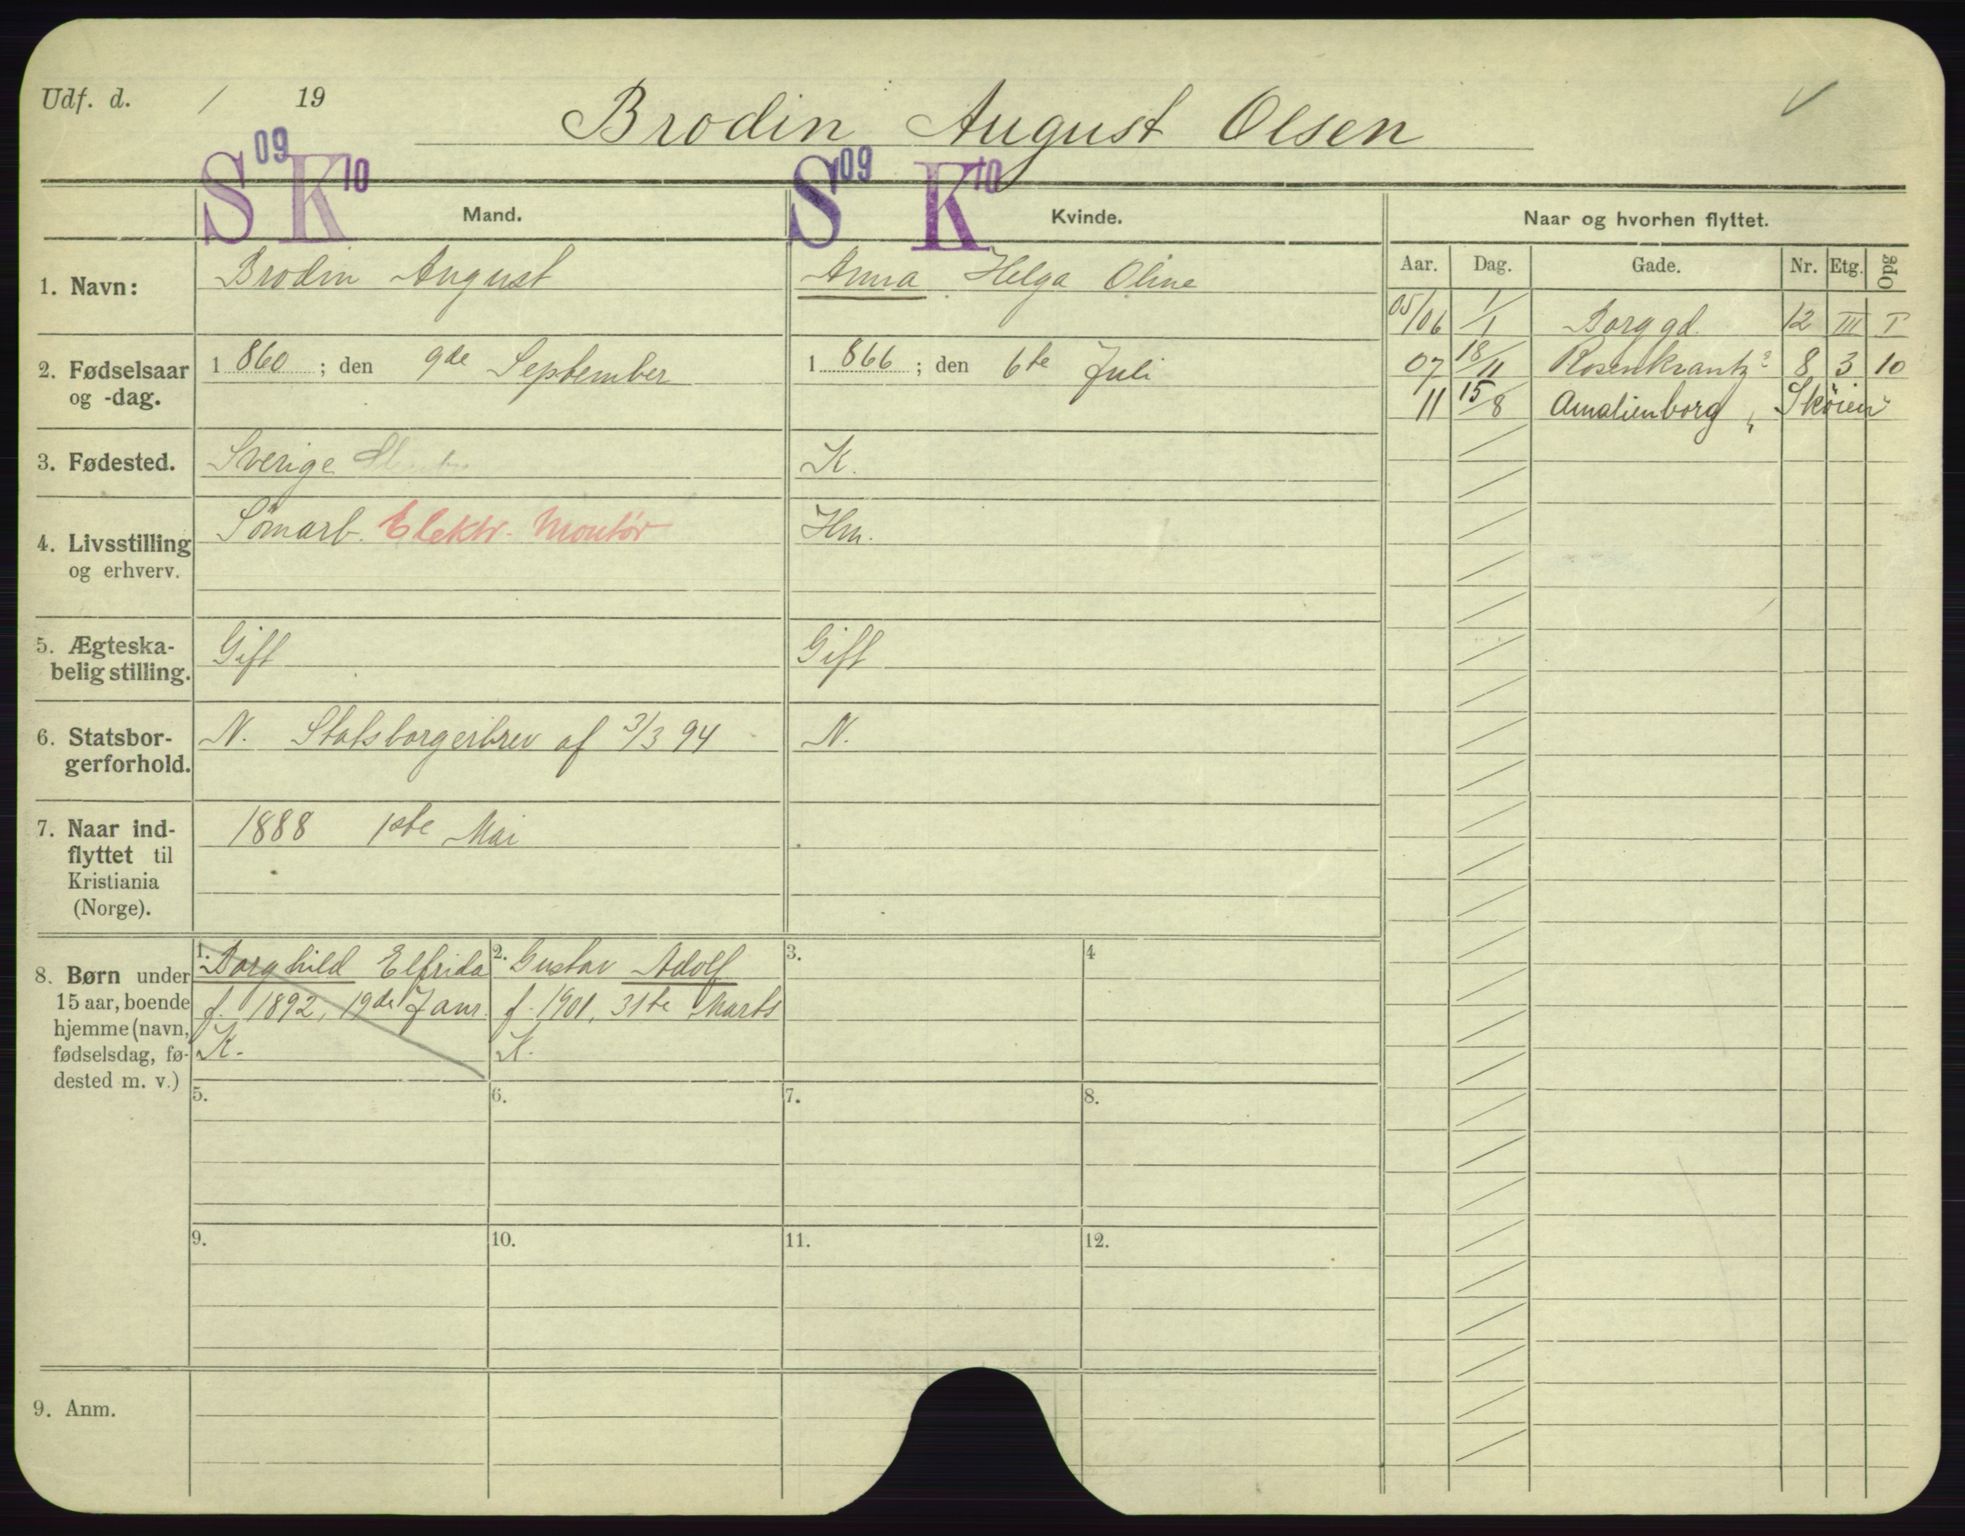 Udf. d. / 19
Brodin August Olsen
S 09 K 10 S 09 K 10
Mand. Kvinde. Naar og hvorhen flyttet.
Aar. Dag. Gade. Nr. Etg. Opg
1. Navn: Brodin August Anna Helga Oline
05/06 1/1 Borggd. 12 III I
2. Fødselsaar og -dag. 1 860 ; den 9de September 1 866 ; den 6te Juli
07 18/11 Rosenkrantz 8 3 10
11 15/8 Amalienborg, Skøien
3. Fødested. Sverige K.
4. Livsstilling og erhverv. Sømarb. Elektr. Montør Hm.
5. Ægteska-
belig stilling. Gift Gift
6. Statsbor-
gerforhold. N. Statsborgerbrev af 3/3 94 N.
7. Naar ind-
flyttet til
Kristiania
(Norge). 1888 1ste Mai
8. Børn under
15 aar, boende
hjemme (navn,
fødselsdag, fø-
dested m. v.)
1. Borghild Elfrida
f. 1892, 19de Janr.
K.
2. Gustav Adolf
f. 1901, 31te Marts
K.
3.
4
5.
6.
7.
8.
9.
10.
11.
12.
9. Anm.